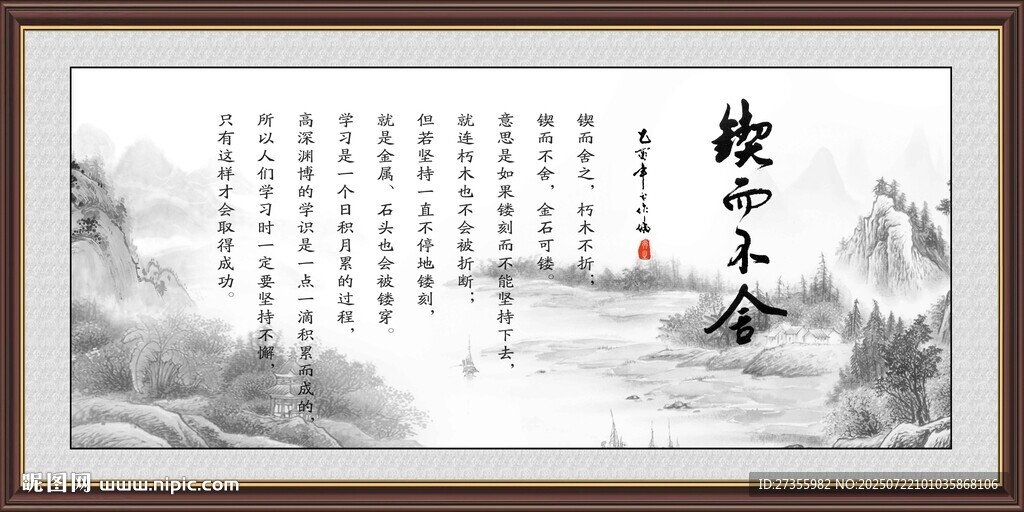 锲而不舍
锲而舍之，朽木不折；
锲而不舍，金石可镂。
意思是如果镂刻而不能坚持下去，
就连朽木也不会被折断；
但若坚持一直不停地镂刻，
就是金属、石头也会被镂穿。
学习是一个日积月累的过程，
高深渊博的学识是一点一滴积累而成的，
所以人们学习时一定要坚持不懈，
只有这样才会取得成功。
昵图网 www.nipic.com
ID:27355982 NO:20250722101035868106